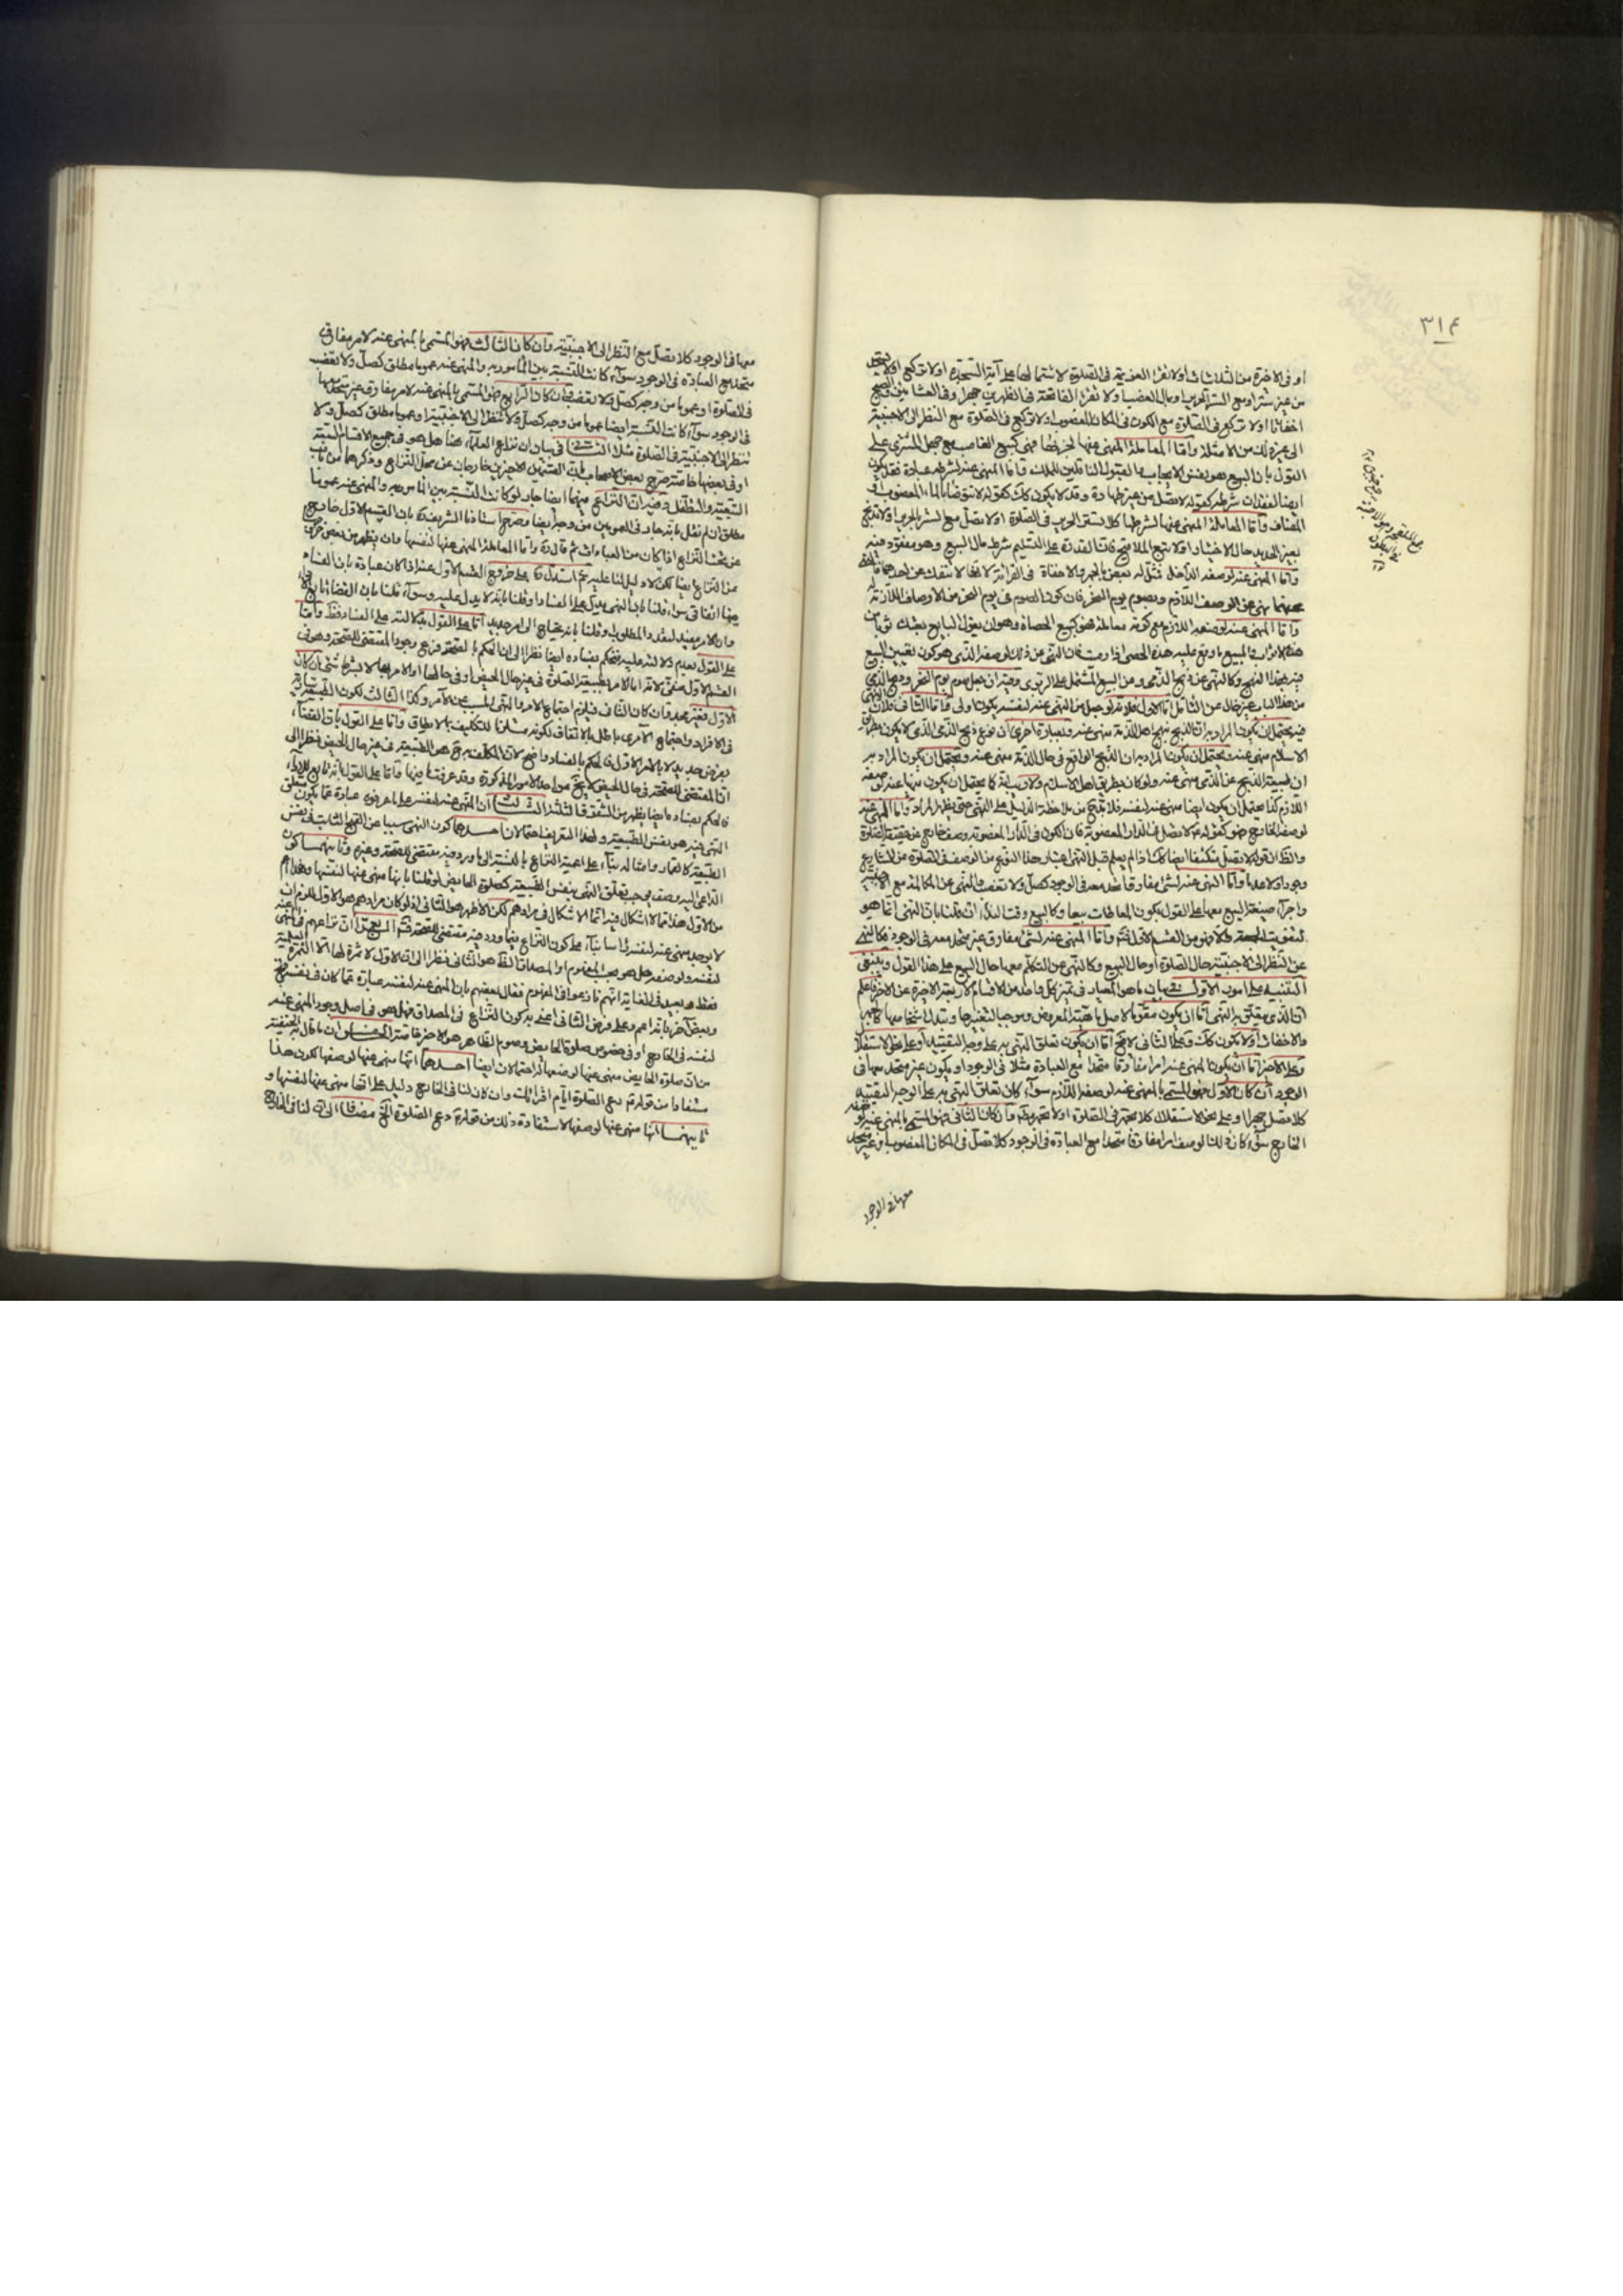 ٣١٤
او فى الاخرة من الثلاثيات او لا تقرأ العزيمة فى الصلوة لاشتمالها على آية السجدة او لا تركع
من غير ستر او مع الستر الحرير او مال الغصب او لا تقرأ الفاتحة فى الظهرين جهرا وفى العشائين والصبح
اخفاتا او لا تركع فى الصلوة مع الكون فى المكان المغصوب او لا تركع فى الصلوة مع النظر الى الاجنبية
الى غير ذلك من الامثلة واما المعاملة المنهى عنها لجزئها فهى كبيع الغاصب مع جهل المشترى على
القول بان البيع هو نفس الايجاب والقبول الناقلين للملك واما المنهى عنه لشرطه عبادة فقد يكون
ايضا لفقدان شرطه كقوله لا تصل من غير طهارة وقد لا يكون كك كقوله لا تتوضأ بالماء المغصوب او
المضاف واما المعاملة المنهى عنها لشرطها كلا تستتر الحرير فى الصلوة او لا تصل مع الستر الحرير او لا تذبح
بغير الحديد حال الاختيار او لا تبع الملاقيح فان القدرة على التسليم شرط حال البيع وهو مفقود فيه
واما المنهى عنه لوصفه الداخل فمثل له بعض بالجهر والاخفات فى القرائة لانها لا تنفك عن احدهما فالنهى
عنهما نهى عن الوصف اللازم وبصوم يوم النحر فان كون الصوم فى يوم النحر من الاوصاف اللازمة له
واما المنهى عنه لوصفه اللازم مع كونه معاملة فهو كبيع الحصاة وهو ان يقول البايع بعتك ثوبا من
هذه الاثواب والمبيع ما وقع عليه هذه الحصى اذا رميت فان النهى عن ذلك لوصفه الذى هو كون تعيين المبيع
فيه بهذا النهج وكالنهى عن ذبح الذمى وعن البيع المشتمل على الربوى وفيه ان جعل صوم يوم النحر وذبح الذمى
من هذا الباب غير خال عن التأمل اما الاول فلانه لو جعل من المنهى عنه لنفسه يكون اولى واما الثانى فلان النهى
فيه يحتمل ان يكون المراد به ان الذبح نهج اهل الذمة منهى عنه وبعبارة اخرى ان نوع ذبح الذمى الذى لا يكون بطريق
الاسلام منهى عنه ويحتمل ان يكون المراد به ان الذبح الواقع فى حال الذمة منهى عنه ويحتمل ان يكون المراد به
ان طبيعة الذبح عن الذمى منهى عنه ولو كان بطريق اهل الاسلام ولا ريب انه كما يحتمل ان يكون نهيا عنه لوصفه
اللازم كذا يحتمل ان يكون ايضا منهى عنه لنفسه فلا بد من ملاحظة الدليل على النهى حتى يظهر المراد واما المنهى عنه
لوصفه الخارج فهو كقوله لا تصل فى الدار المغصوبة فان الكون فى الدار المغصوبة وصف خارج عن حقيقة الصلوة
والظ ان قوله لا تصل متكتفا ايضا كك اذا لم يعلم قبل النهى اعتبار هذا النوع من الوصف فى الصلوة من الشارع
وجودا ولا عدما واما النهى عنه لشئ مفارق متحد معه فى الوجود كصل ولا تغصب والنهى عن المكالمة مع الاجنبية
واجراء صيغة البيع معها على القول بكون المعاطات بيعا وكالبيع وقت النداء ان قلنا بان النهى انما هو
لتفويت الجمعة والا فهو من القسم الاول واما المنهى عنه لشئ مفارق غير متحد معه فى الوجود فكالنهى
عن النظر الى الاجنبية حال الصلوة او حال البيع وكالنهى عن التكلم معها حال البيع على هذا القول وينبغى
التنبيه على امور الاول فى بيان ما هو المعيار فى تميز كل واحد من الاقسام الاربعة الاخيرة عن الاخر فاعلم
ان الذى يتعلق به النهى اما ان يكون مقوما لاصل ماهية المعروض وموجبا لتغيرها وتبدل اشخاصها كالجهر
والاخفات او لا يكون كك وعلى الثانى لا يخ اما ان يكون تعلق النهى به على وجه التقييد او على نحو الاستقلال
وعلى الاخير اما ان يكون المنهى عنه امرا مفارقا متحدا مع العبادة مثلا فى الوجود او يكون غير متحد معها فى
الوجود ان كان الاول فهو المسمى بالمنهى عنه لوصفه اللازم سواء كان تعلق النهى به على الوجه التقييد
كلا تصل جهرا او على نحو الاستقلال كلا تجهر فى الصلوة او لا تجهر مط وان كان الثانى فهو المسمى بالمنهى عنه لوصفه
الخارج سواء كان ذلك الوصف امرا مفارقا متحدا مع العبادة فى الوجود كلا تصل فى المكان المغصوب او غير متحد
معها فى الوجود
معها فى الوجود كلا تصل مع النظر الى الاجنبية وان كان الثالث فهو المسمى بالمنهى عنه لامر مفارق
متحد مع العبادة فى الوجود سواء كانت النسبة بين المأمور به والمنهى عنه عموما مطلق كصل ولا تغصب
فى الصلوة او عموما من وجه كصل ولا تغصب وان كان الرابع فهو المسمى بالمنهى عنه لامر مفارق غير متحد معها
فى الوجود سواء كانت النسبة ايضا عموما من وجه كصل ولا تنظر الى الاجنبية او عموما مطلق كصل ولا
تنظر الى الاجنبية فى الصلوة مثلا الثانى فى بيان ان نزاع العلماء هنا هل هو فى جميع الاقسام الستة
او فى بعضها خاصة صرح بعض الاصحاب بان القسمين الاخيرين خارجان عن محل النزاع وذكرهما من باب
التبعية والتطفل وفيه ان النزاع فيهما ايضا جار لو كانت النسبة بين المأمور به والمنهى عنه عموما
مطلق ان لم نقل بانه جار فى العمومين من وجه ايضا وصرح استاذنا الشريف بان القسم الاول خارج
عن محل النزاع اذا كان من العبادات ثم قال واما المعاملة المنهى عنها لنفسها وان يظهر من بعض خروجها
عن النزاع ايضا لكن لا دليل لنا عليه ثم استدل على خروج القسم الاول عنه اذا كان عبادة بان الفساد
فيها اتفاقى سواء قلنا بان النهى يدل على الفساد او قلنا بانه لا يدل عليه وسواء قلنا بان القضاء تابع للاداء
وان الامر مفيد لتعدد المطلوب او قلنا بانه يحتاج الى امر جديد اما على القول بدلالته على الفساد فظ واما
على القول بعدم دلالته عليه فنحكم بفساده ايضا نظرا الى ان الحكم بالصحة فرع وجود المقتضى للصحة وهو فى
القسم الاول منتف لانه اما الامر بطبيعة الصلوة فى غير حال الحيض او فى حالها او الامر بها لا بشرط شئ فان كان
الاول فغير مجد وان كان الثانى فيلزم اجتماع الامر والنهى المسبب عن الآمر وكذا الثالث لكون الطبيعة سارية
فى الافراد واجتماع الآمرى باطل بالاتفاق لكونه مستلزما للتكليف بما لا يطاق واما على القول بان القضاء
بفرض جديد لا بالامر الاول فالحكم بالفساد واضح لان المكلف به ح هو الطبيعة فى غير حال الحيض نظرا الى
ان المقتضى للصحة فى حال الحيض لا يخ من احد الامور المذكورة وقد عرفت ما فيها واما على القول بانه تابع للاداء
فالحكم بفساده ايضا يظهر من الشقوق الثلثة الثالث ان المنهى عنه لنفسه على ما عرفوه عبارة عما يكون متعلق
النهى فيه هو نفس الطبيعة ولهذا التعريف احتمالان احدهما كون النهى مسببا عن القبح الثابت فى نفس
الطبيعة كالقمار وامثاله بناء على اعمية النزاع بالنسبة الى ما ورد فيه مقتضى للصحة وغيره وثانيهما كون
الداعى اليه وصف يوجب تعلق النهى بنفس الطبيعة كصلوة الحايض لو قلنا بانها منهى عنها لنفسها وهذا اعم
من الاول هذا مما لا اشكال فيه انما الاشكال فى مرادهم لكن الاظهر هو الثانى اذ لو كان مرادهم هو الاول للزم ان
لا يوجد منهى عنه لنفسه اساسا بناء على كون النزاع فيما ورد فيه مقتضى للصحة فت الرابع ان نزاعهم فى المنهى عنه
لنفسه ولوصفه هل هو بحسب المفهوم او المصداق الظ هو الثانى نظرا الى ان الاول لا ثمرة لها الا الثمرة العلمية
فقط وبعيد فى الغاية انهم نازعوا فى المفهوم فقال بعضهم بان المنهى عنه لنفسه عبارة عما كان فى نفسه قبح
وبعض آخر بانه اعم وعلى فرض الثانى اعنى به كون النزاع فى المصداق فهل هو فى اصل وجود المنهى عنه
لنفسه فى الخارج او فى خصوص صلوة الحايض وصوم الظاهر هو الاخر خاصة الخامس ان ما قال به الحنفية
من ان صلوة الحايض منهى عنها لوصفها له احتمالان ايضا احدهما انها منهى عنها لوصفها لكون هذا
مستفادا من قوله دع الصلوة ايام اقرائك وان كان لنا فى الخارج دليل على انها منهى عنها لنفسها و
ثانيهما انها منهى عنها لوصفها لاستفادة ذلك من قوله دع الصلوة الخ مضافا الى انه لنا فى الخارج